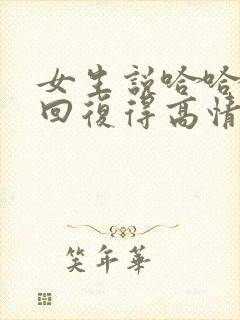 女生說哈哈
回復得高情
笑年華